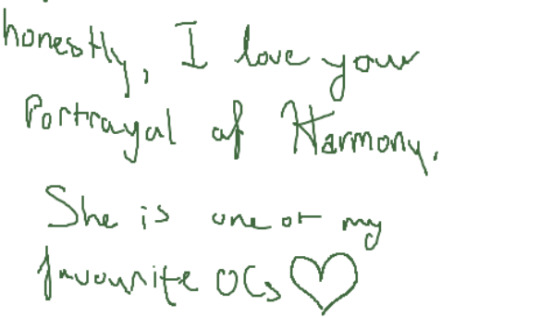 honestly, I love your
Portrayal of Harmony.
She is one of my
favourite OCs ♡